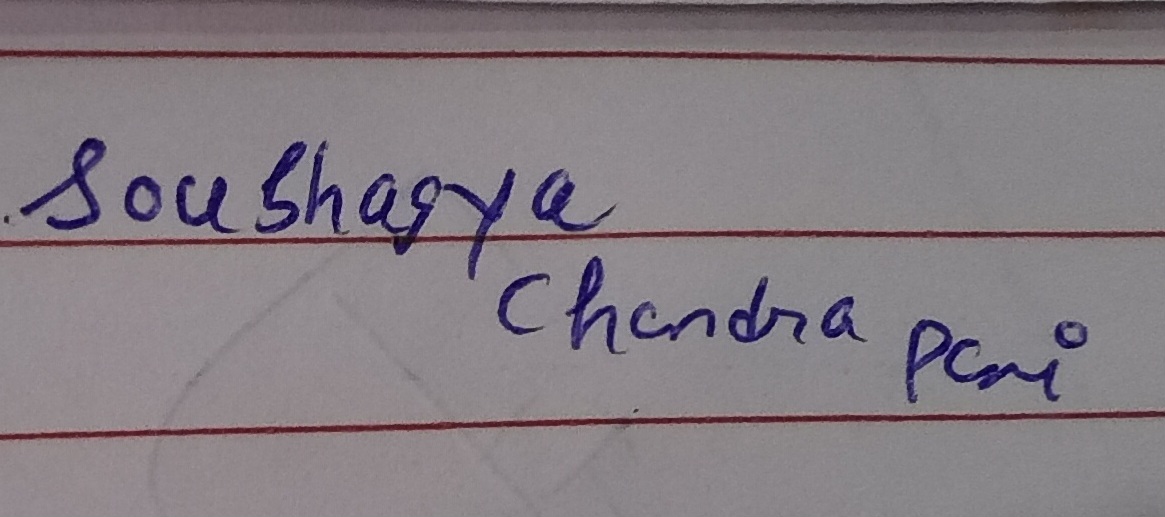 Soubhagya
Chandra Pani